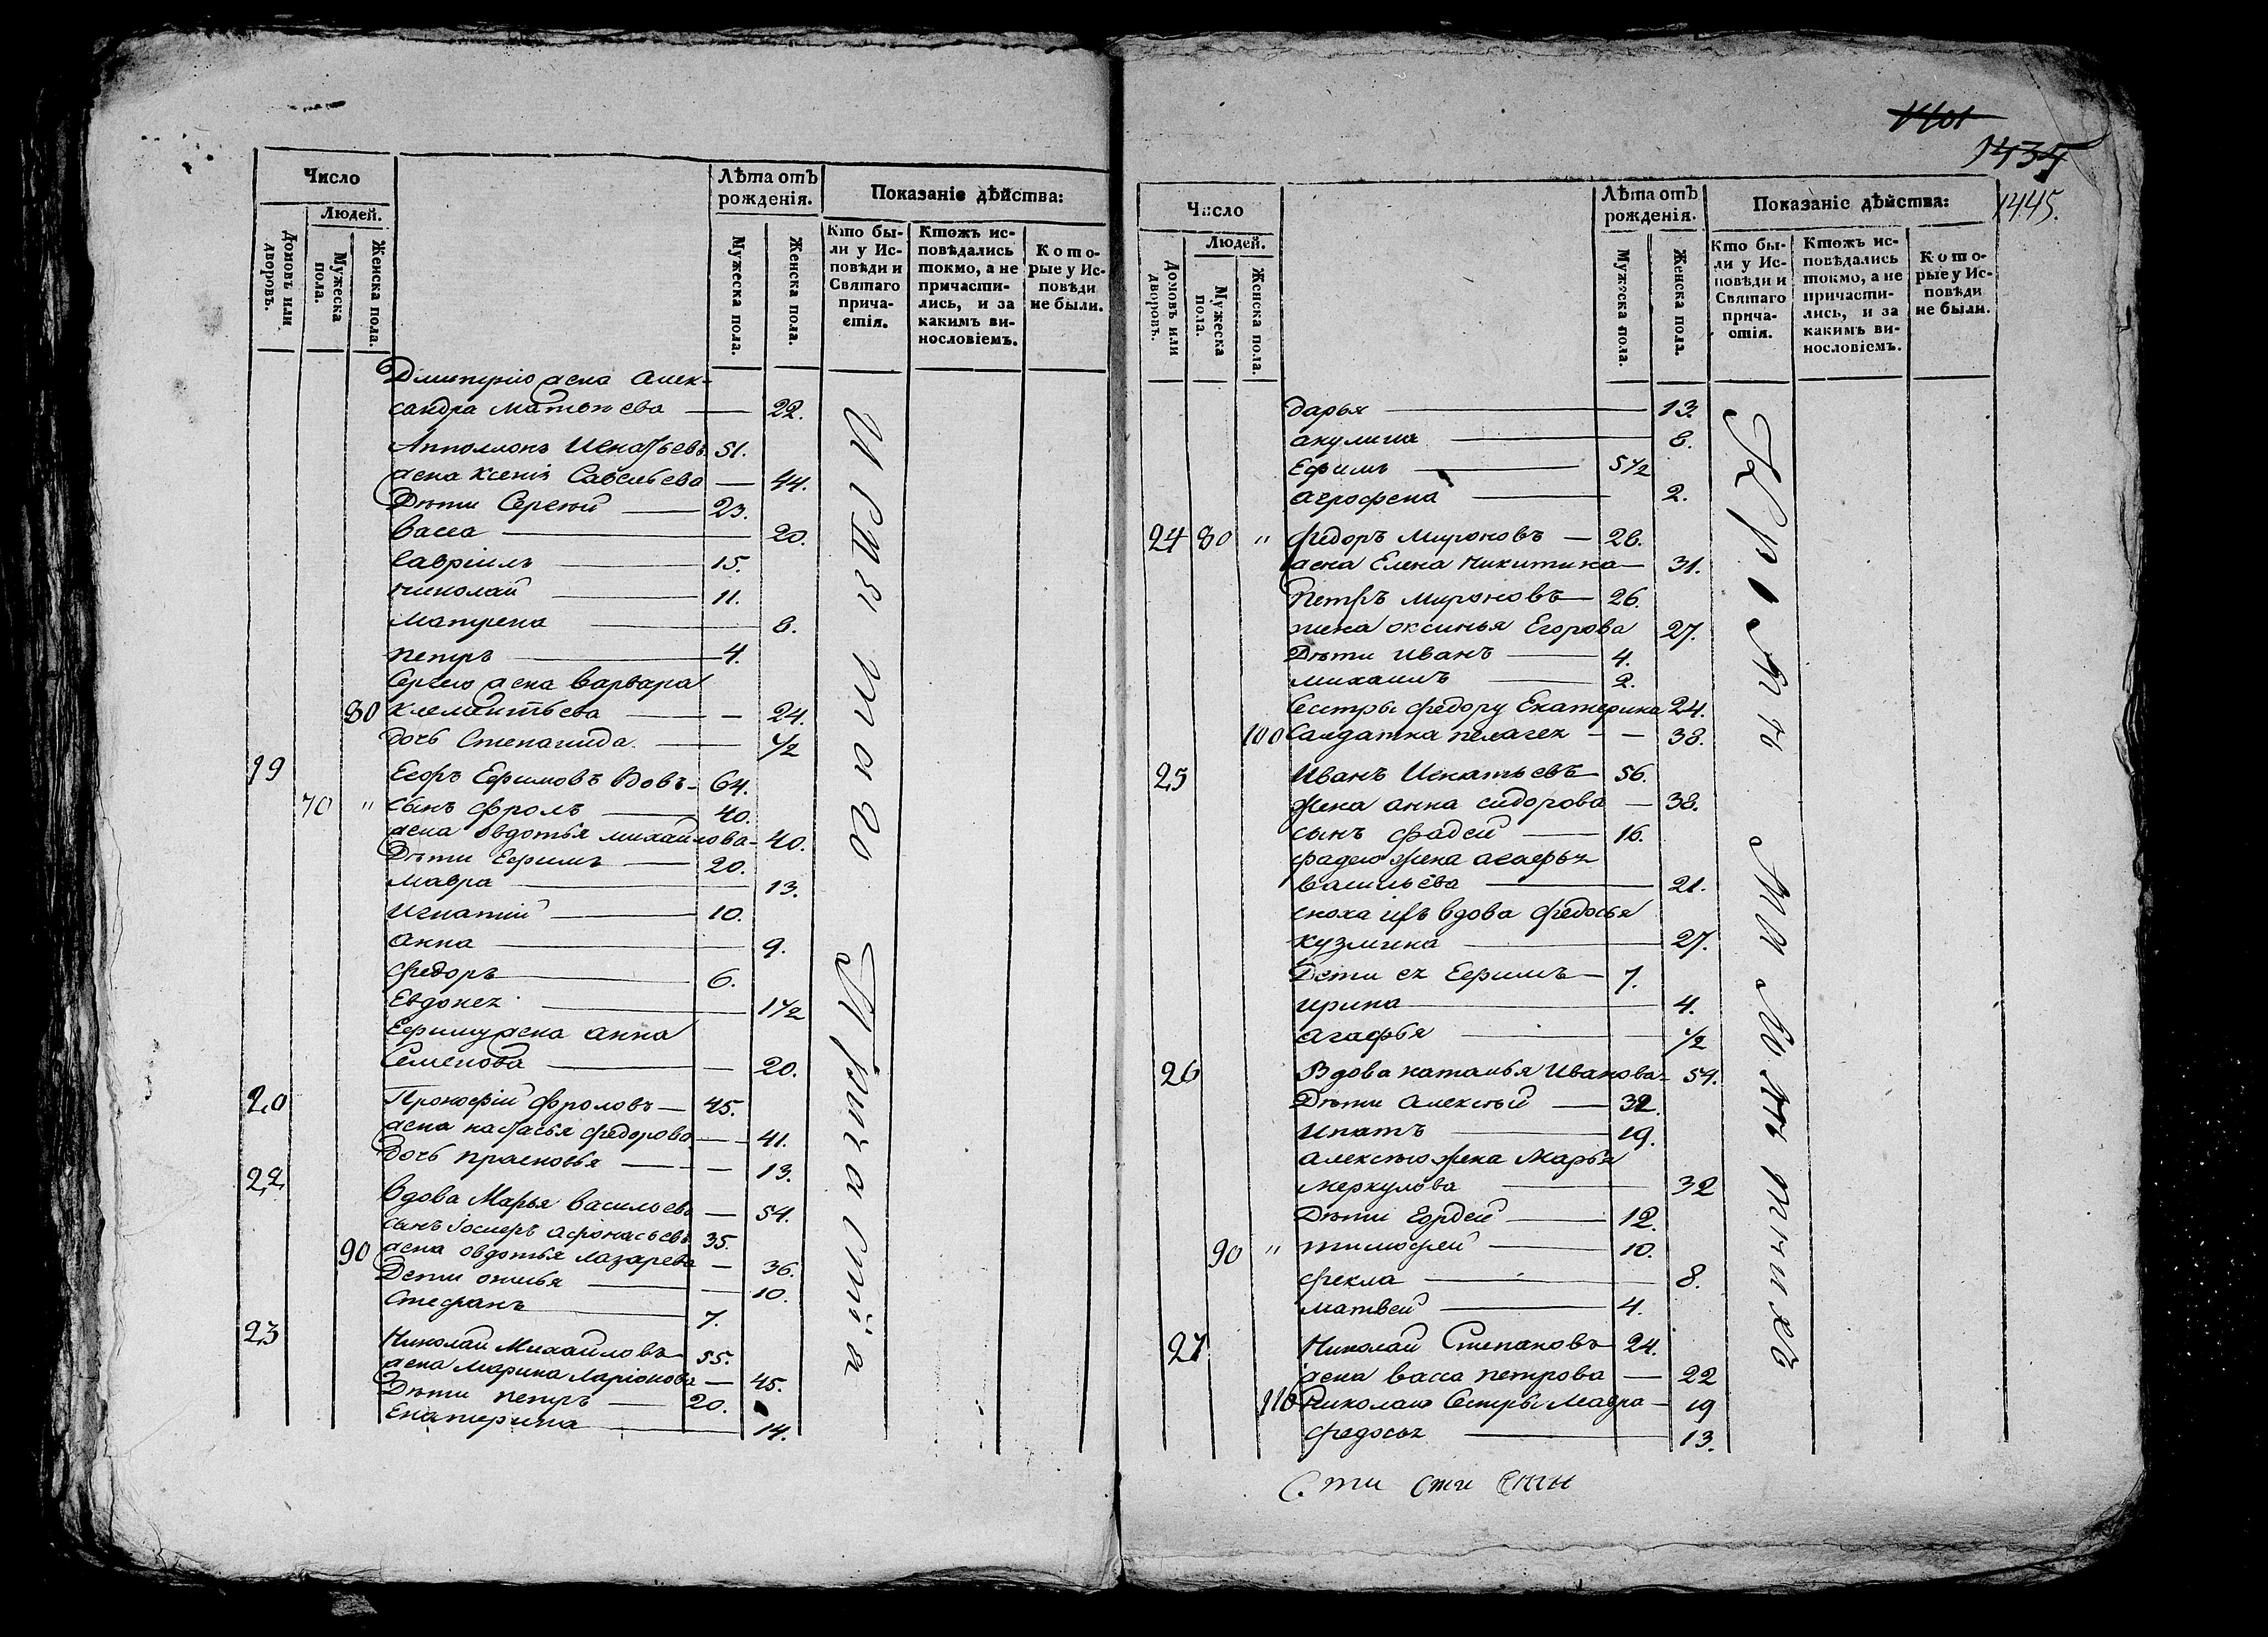 Число
Людей.
Домовъ или дворовъ.
Мужеска пола.
Женска пола.
Лѣта отъ рожденія.
Мужеска пола.
Женска пола.
Показаніе дѣйства:
Кто бы-
ли у Ис-
повѣди и
Святаго
прича-
стія.
Ктожъ ис-
повѣдались
токмо, а не
причасти-
лись, и за
какимъ ви-
нословіемъ.
Кото-
рые у Ис-
повѣди
не были.
Дмитрію жена Алек-
сандра Матвѣева — 22.
Апполлонъ Игнатьевъ 51.
жена Ксенія Савельева — 44.
Дѣти Сергѣй — 23.
Васса — 20.
Гавріилъ — 15.
Николай — 11.
Матрена — 8.
Петръ — 4.
Сергѣю жена Варвара
80 Клементьева — 24.
дочь Степанида — 1/2
19 Егоръ Ефимовъ Вдовъ 64.
70 " сынъ Фролъ — 40.
жена Овдотья Михайлова 40.
Дѣти Ефимъ — 20.
Мавра — 13.
Игнатій — 10.
Анна — 9.
Федоръ — 6.
Евдокея — 1 1/2
Ефиму жена Анна
Семенова — 20.
20 Прокофій Фроловъ — 45.
жена Настасья Федорова — 41.
дочь Прасковья — 13.
22 Вдова Марья Васильева — 54.
сынъ Афонасьевъ 35.
90 жена Овдотья Лазарева — 36.
Дети — 10.
Стефанъ — 7.
23 Николай Михайловъ 55.
жена Марина Ларіонова — 45.
Дѣти Петръ — 20.
Екатерина — 14.
1435
1445.
Число
Людей.
Домовъ или дворовъ.
Мужеска пола.
Женска пола.
Лѣта отъ рожденія.
Мужеска пола.
Женска пола.
Показаніе дѣйства:
Кто бы-
ли у Ис-
повѣди и
Святаго
прича-
стія.
Ктожъ ис-
повѣдались
токмо, а не
причасти-
лись, и за
какимъ ви-
нословіемъ.
Кото-
рые у Ис-
повѣди
не были.
Дарья — 13.
Акулина — 8.
Ефимъ — 5 1/2
Агрофена — 2.
24 80 " Федоръ Мироновъ — 28.
жена Елена Никитина — 31.
Петръ Мироновъ — 26.
жена Оксинья Егорова 27.
Дѣти Иванъ — 4.
Михаилъ — 2.
Сестры Федору Екатерина 24.
100 Салдатка Пелагея — 38.
25 Иванъ Игнатьевъ — 56.
жена Анна Сидорова — 38.
сынъ Фадей — 16.
Фадею жена Агафья
Васильева — 21.
сноха ихъ вдова Федосья
Кузмина — 27.
Дети ея Ефимъ — 7.
Ирина — 4.
Агафья — 1/2
26 Вдова Наталья Иванова 54.
Дѣти Алексѣй — 32.
Ипатъ — 19.
Алексѣю жена Марья
Меркулова — 32
Дѣти Гордей — 12.
90 " Тимофей — 10.
Фекла — 8.
Матвей — 4.
27 Николай Степановъ 24.
жена Васса Петрова — 22
110 Николаю Сестры Мавра — 19
Федосья — 13.